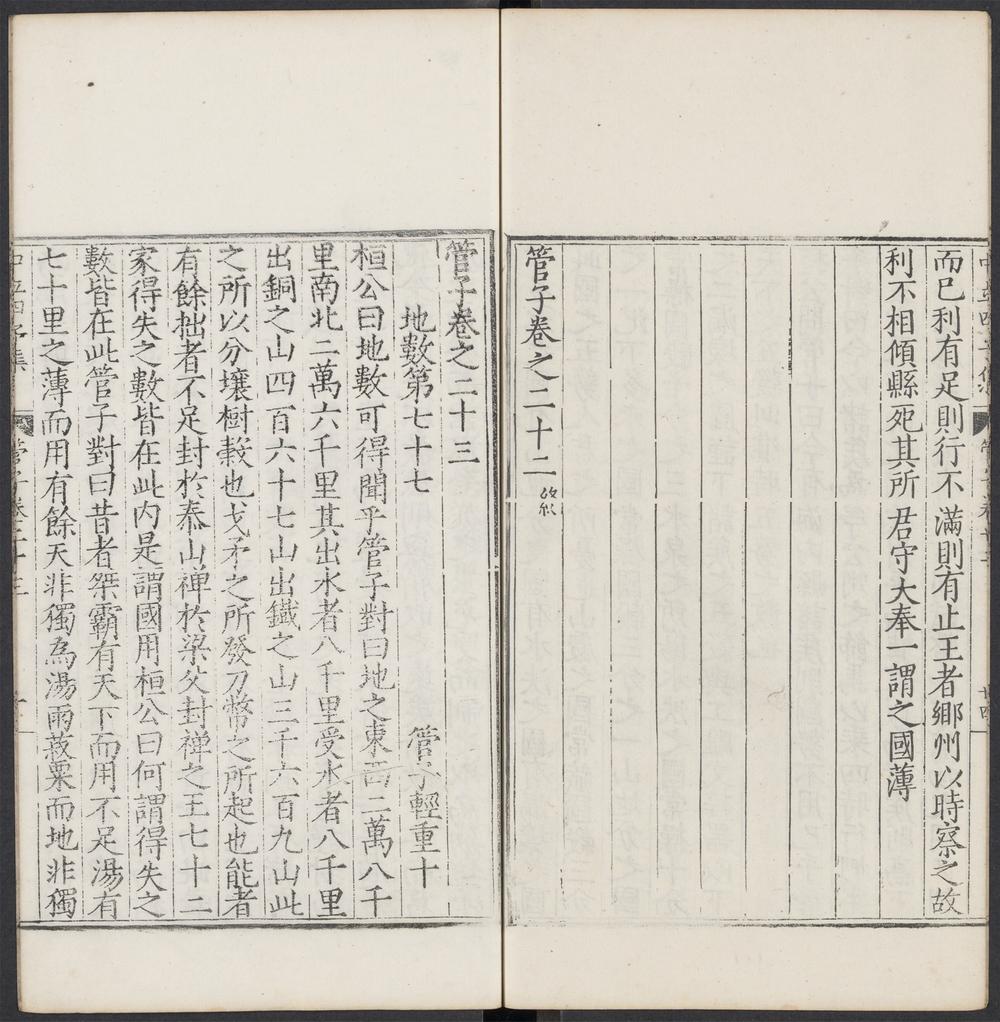 而已利有足則行不滿則有止王者鄉州以時察之故
利不相傾縣死其所君守大奉一謂之國薄
管子卷之二十二 終
管子卷之二十三
地數第七十七 管子輕重十
桓公曰地數可得聞乎管子對曰地之東西二萬八千
里南北二萬六千里其出水者八千里受水者八千里
出銅之山四百六十七山出鐵之山三千六百九山此
之所以分壤樹穀也戈矛之所發刀幣之所起也能者
有餘拙者不足封於泰山禪於梁父封禪之王七十二
家得失之數皆在此內是謂國用桓公曰何謂得失之
數皆在此管子對曰昔者桀霸有天下而用不足湯有
七十里之薄而用有餘天非獨為湯雨菽粟而地非獨